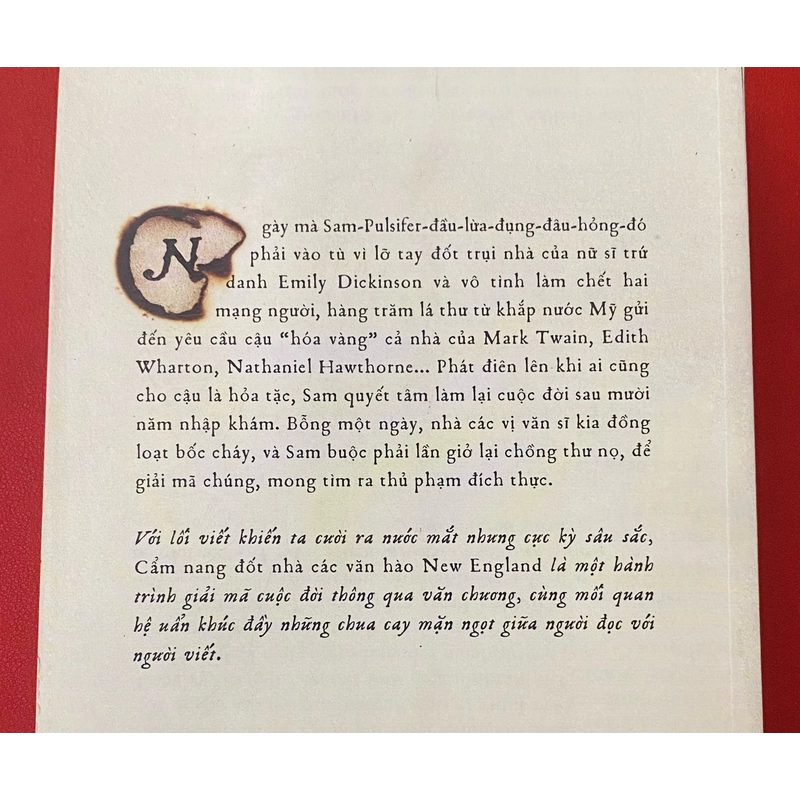 Ngày mà Sam-Pulsifer-đầu-lừa-đụng-đâu-hỏng-đó
phải vào tù vì lỡ tay đốt trụi nhà của nữ sĩ trứ
danh Emily Dickinson và vô tình làm chết hai
mạng người, hàng trăm lá thư từ khắp nước Mỹ gửi
đến yêu cầu cậu “hóa vàng” cả nhà của Mark Twain, Edith
Wharton, Nathaniel Hawthorne... Phát điên lên khi ai cũng
cho cậu là hỏa tặc, Sam quyết tâm làm lại cuộc đời sau mười
năm nhập khám. Bỗng một ngày, nhà các vị văn sĩ kia đồng
loạt bốc cháy, và Sam buộc phải lần giở lại chồng thư nọ, để
giải mã chúng, mong tìm ra thủ phạm đích thực.
Với lối viết khiến ta cười ra nước mắt nhưng cực kỳ sâu sắc,
Cẩm nang đốt nhà các văn hào New England là một hành
trình giải mã cuộc đời thông qua văn chương, cùng mối quan
hệ uẩn khúc đầy những chua cay mặn ngọt giữa người đọc với
người viết.